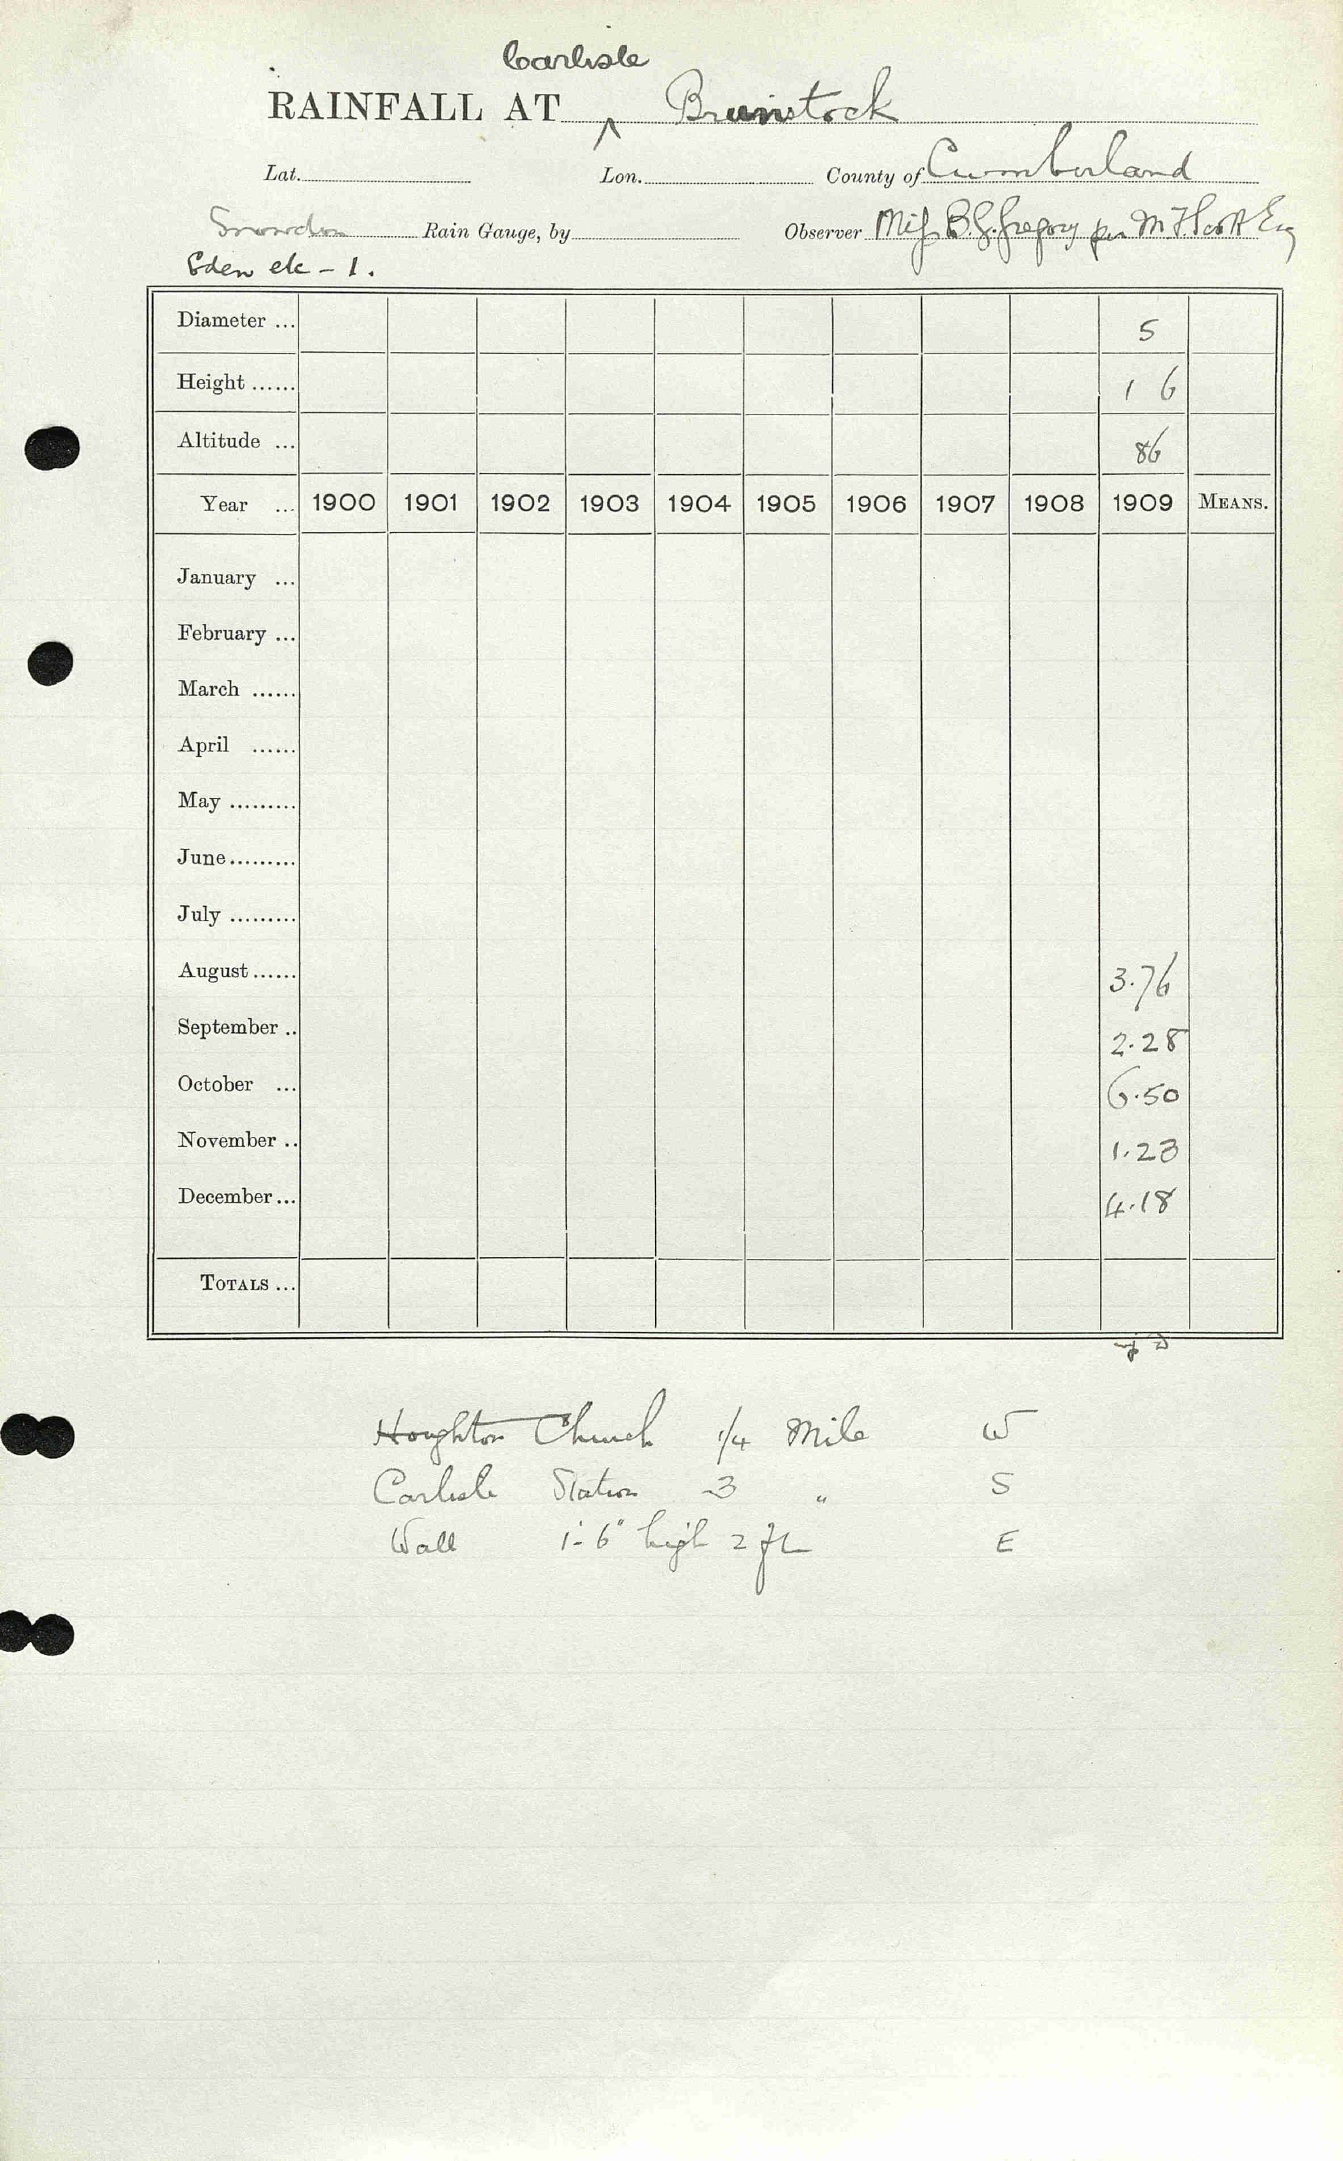 Carlisle
RAINFALL AT ^ Brunstock
Lat. Lon. County of Cumberland
Snowdon Rain Gauge, by Observer Miss B.G. Gregory per M F Scott Esq
Eden etc - 1.
Diameter ... 5
Height ...... 1 6
Altitude ... 86
Year ... 1900 1901 1902 1903 1904 1905 1906 1907 1908 1909 MEANS.
January ...
February ...
March ......
April ......
May .........
June .........
July .........
August ...... 3.76
September .. 2.28
October ... 6.50
November .. 1.23
December ... 4.18
TOTALS ...
Houghton Church 1/4 Mile W
Carlisle Station 3 " S
Wall 1'-6" high 2 ft E